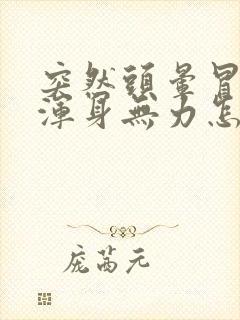 突然頭暈冒
渾身無力怎
庞茜元